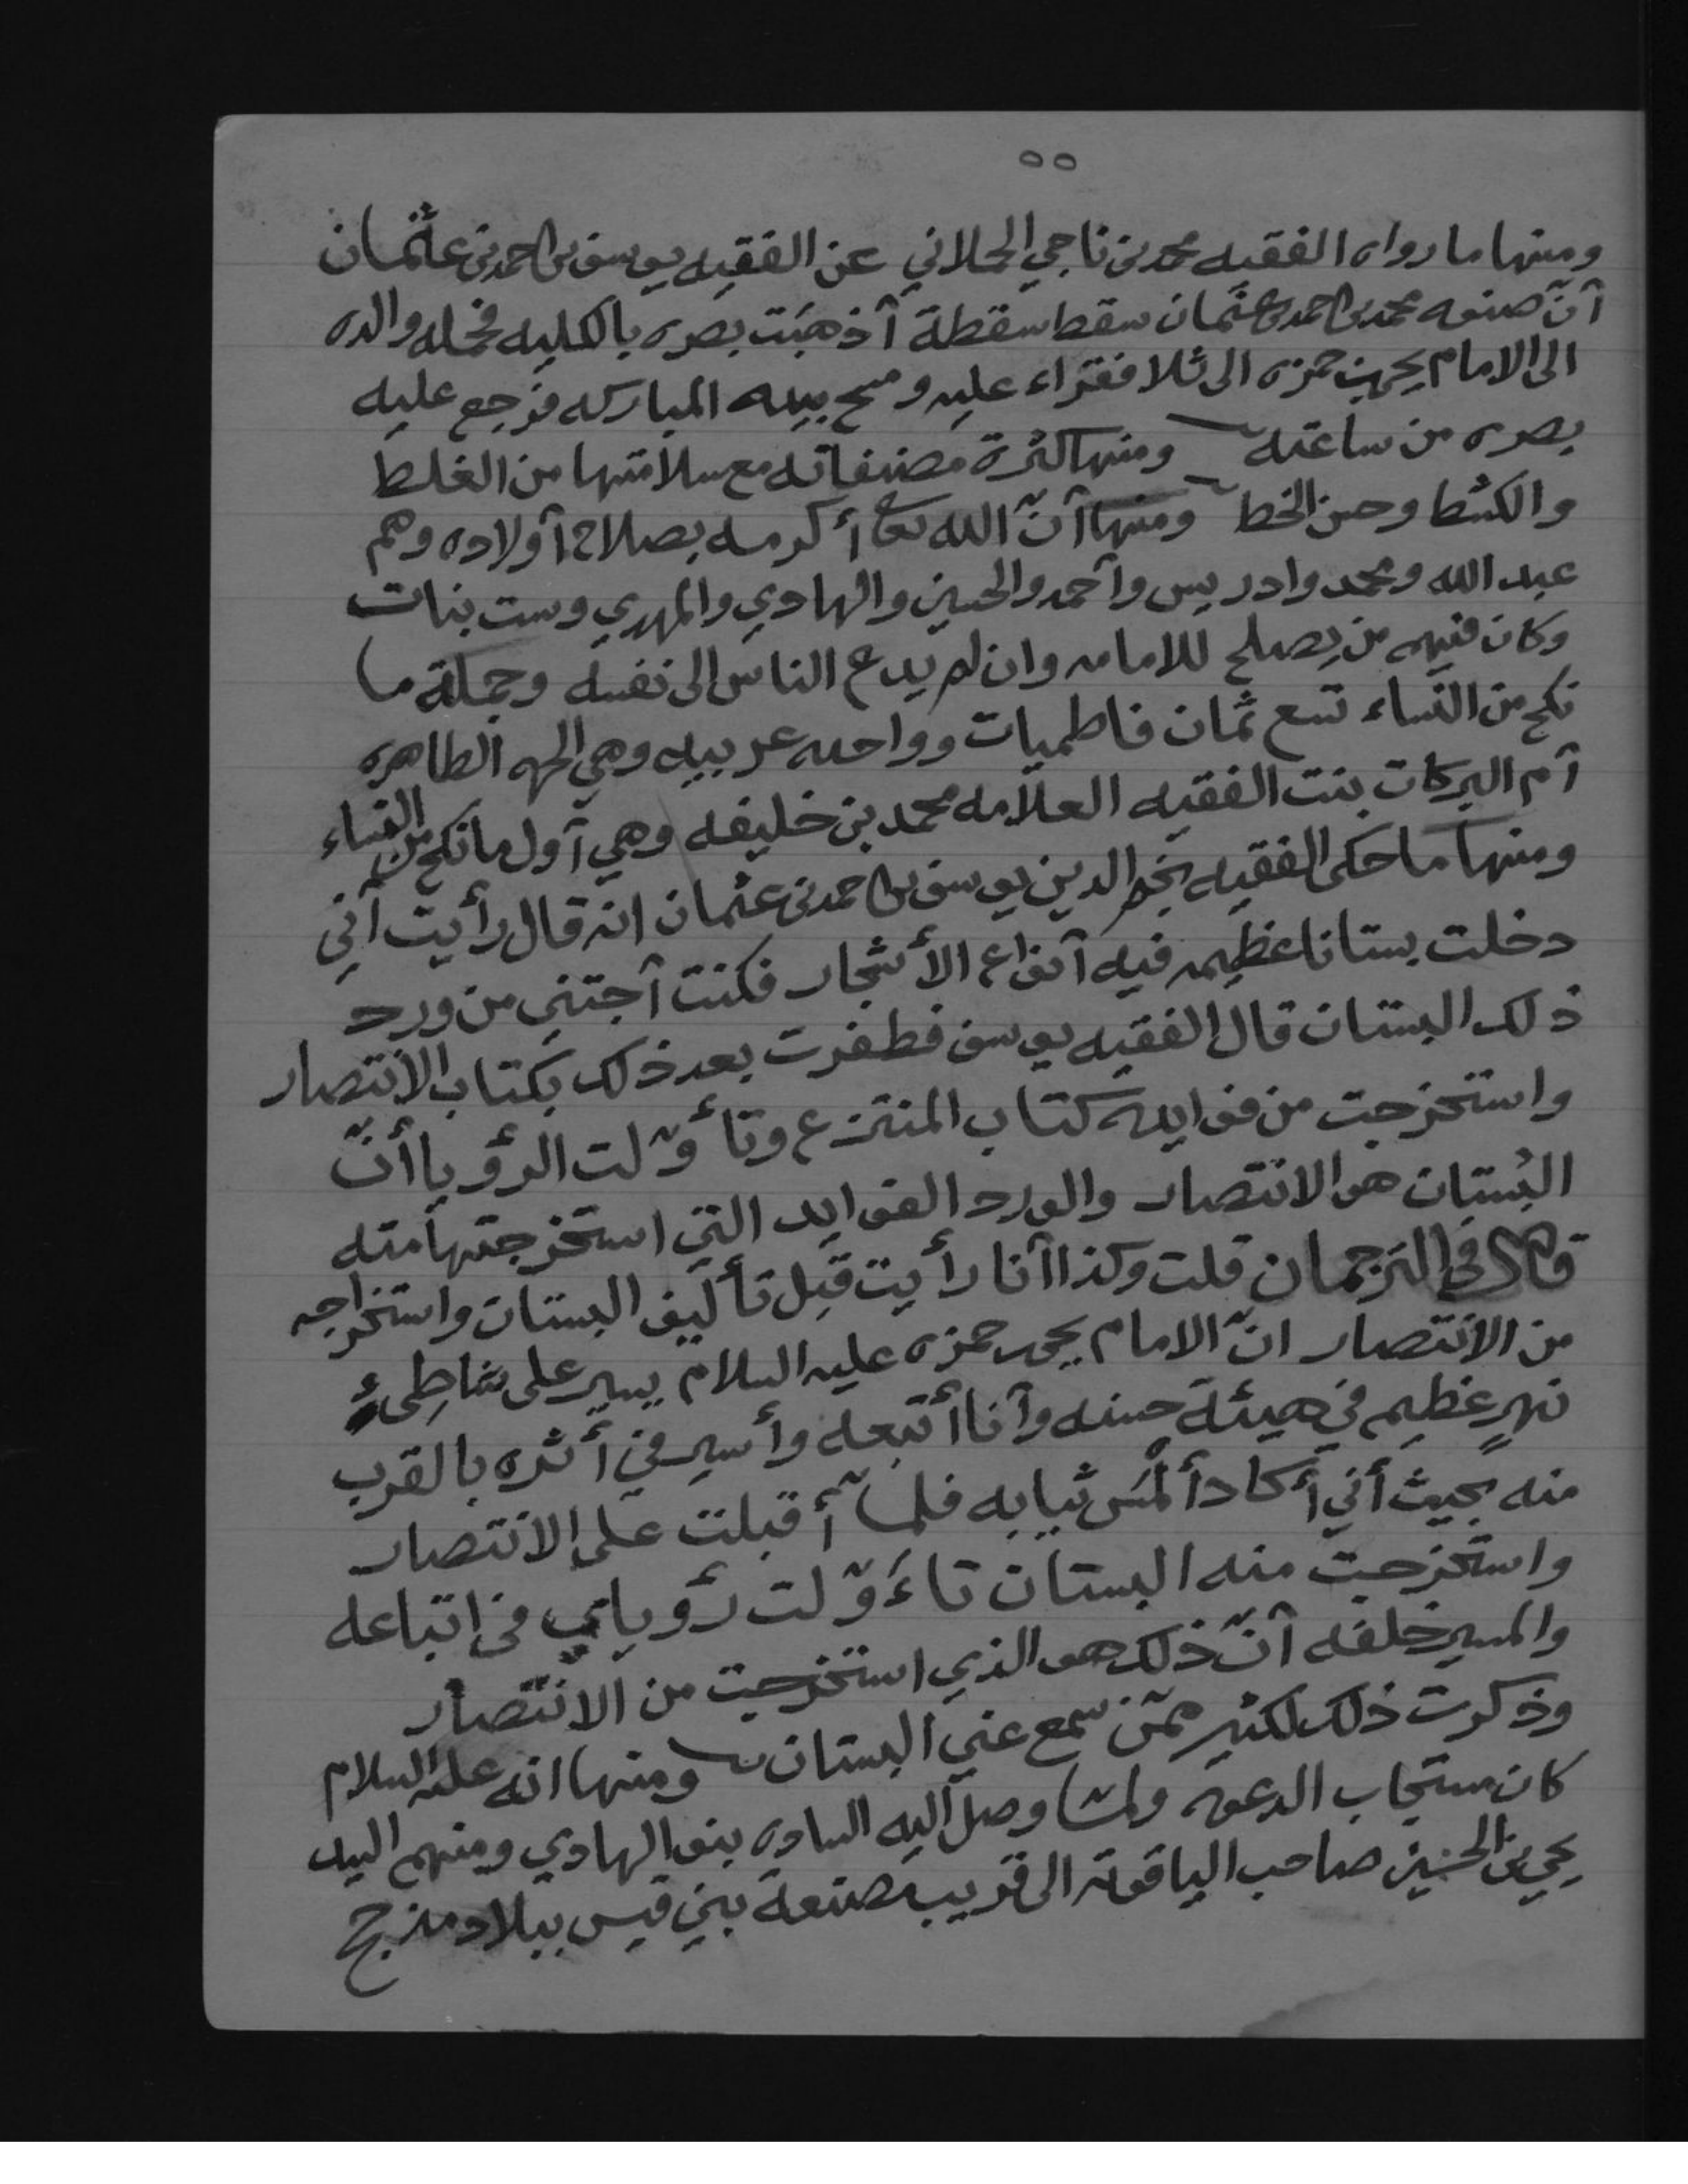 ٥٥
ومنها ما رواه الفقيه محمد بن ناجي الحملاني عن الفقيه يوسف بن احمد بن عثمان
آن صنوه محمد بن احمد بن عثمان سقط سقطة آذهبت بصره بالكليه فحمله والده
الى الامام يحيى بن حمزه الى ثلا فقراء عليه ومسح بيده المباركه فرجع عليه
بصره من ساعته ومنها كثرة مصنفاته مع سلامتها من الغلط
والكشط وحسن الخط ومنها آنّ الله تعا أكرمه بصلاح آولاده وهم
عبد الله ومحمد وادريس وآحمد والحسين والهادي والمهدي وست بنات
وكان فيهم من يصلح للامامه وان لم يدع الناس الى نفسه وجملة ما
نكح من النساء تسع ثمان فاطميات وواحده عربيه وهي الحره الطاهره
آم البركات بنت الفقيه العلآمه محمد بن خليفه وهي آول ما نكح من النساء
ومنها ما حكى الفقيه نجم الدين يوسف بن احمد بن عثمان انه قال رأيت آني
دخلت بستانا عظيمه فيه آنواع الأشجار فكنت آجتني من ورد
ذلك البستان قال الفقيه يوسف فظفرت بعد ذلك بكتاب الانتصار
واستخرجت من فوايده كتاب المنتزع وتأوّلت الرؤيا أنّ
البُستان هو الانتصار والورد الفوايد التي استخرجتها منه
قال في الترجمان قلت وكذا آنا رأيت قبل تأليف البستان واستخراجه
من الانتصار انّ الامام يحيى بن حمزه عليه السلام يسير على شاطِئ
نهرٍ عظيم في هيئة حسنه وآنا أتبعه وأسير في أثره بالقرب
منه بحيث أني أكاد ألمَس ثيابه فلما أقبلت على الانتصار
واستخرجت منه البستان تاءَوّلت رؤياي في اتباعه
والمسير خلفه آنّ ذلك هو الذي استخرجت من الانتصار
وذكرت ذلك لكثير ممّن سمع عني البستان ومنها انه عليه السلام
كان مستجاب الدعوه ولما وصل اليه الساده بنو الهادي ومنهم السيد
يحيى بن الحسين صاحب الياقوته الى قريب مصنعة بني قيس ببلاد مذحج